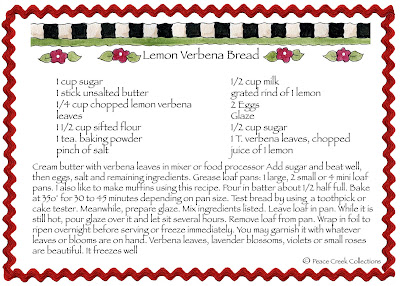 Lemon Verbena Bread
1 cup sugar
1 stick unsalted butter
1/4 cup chopped lemon verbena
leaves
1 1/2 cup sifted flour
1 tea. baking powder
pinch of salt
1/2 cup milk
grated rind of 1 lemon
2 Eggs
Glaze
1/2 cup sugar
1 T. verbena leaves, chopped
juice of 1 lemon
Cream butter with verbena leaves in mixer or food processor Add sugar and beat well,
then eggs, salt and remaining ingredients. Grease loaf pans: 1 large, 2 small or 4 mini loaf
pans. I also like to make muffins using this recipe. Pour in batter about 1/2 half full. Bake
at 35o' for 30 to 45 minutes depending on pan size. Test bread by using a toothpick or
cake tester. Meanwhile, prepare glaze. Mix ingredients listed. Leave loaf in pan. While it is
still hot, pour glaze over it and let sit several hours. Remove loaf from pan. Wrap in foil to
ripen overnight before serving or freeze immediately. You may garnish it with whatever
leaves or blooms are on hand. Verbena leaves, lavender blossoms, violets or small roses
are beautiful. It freezes well
© Peace Creek Collections